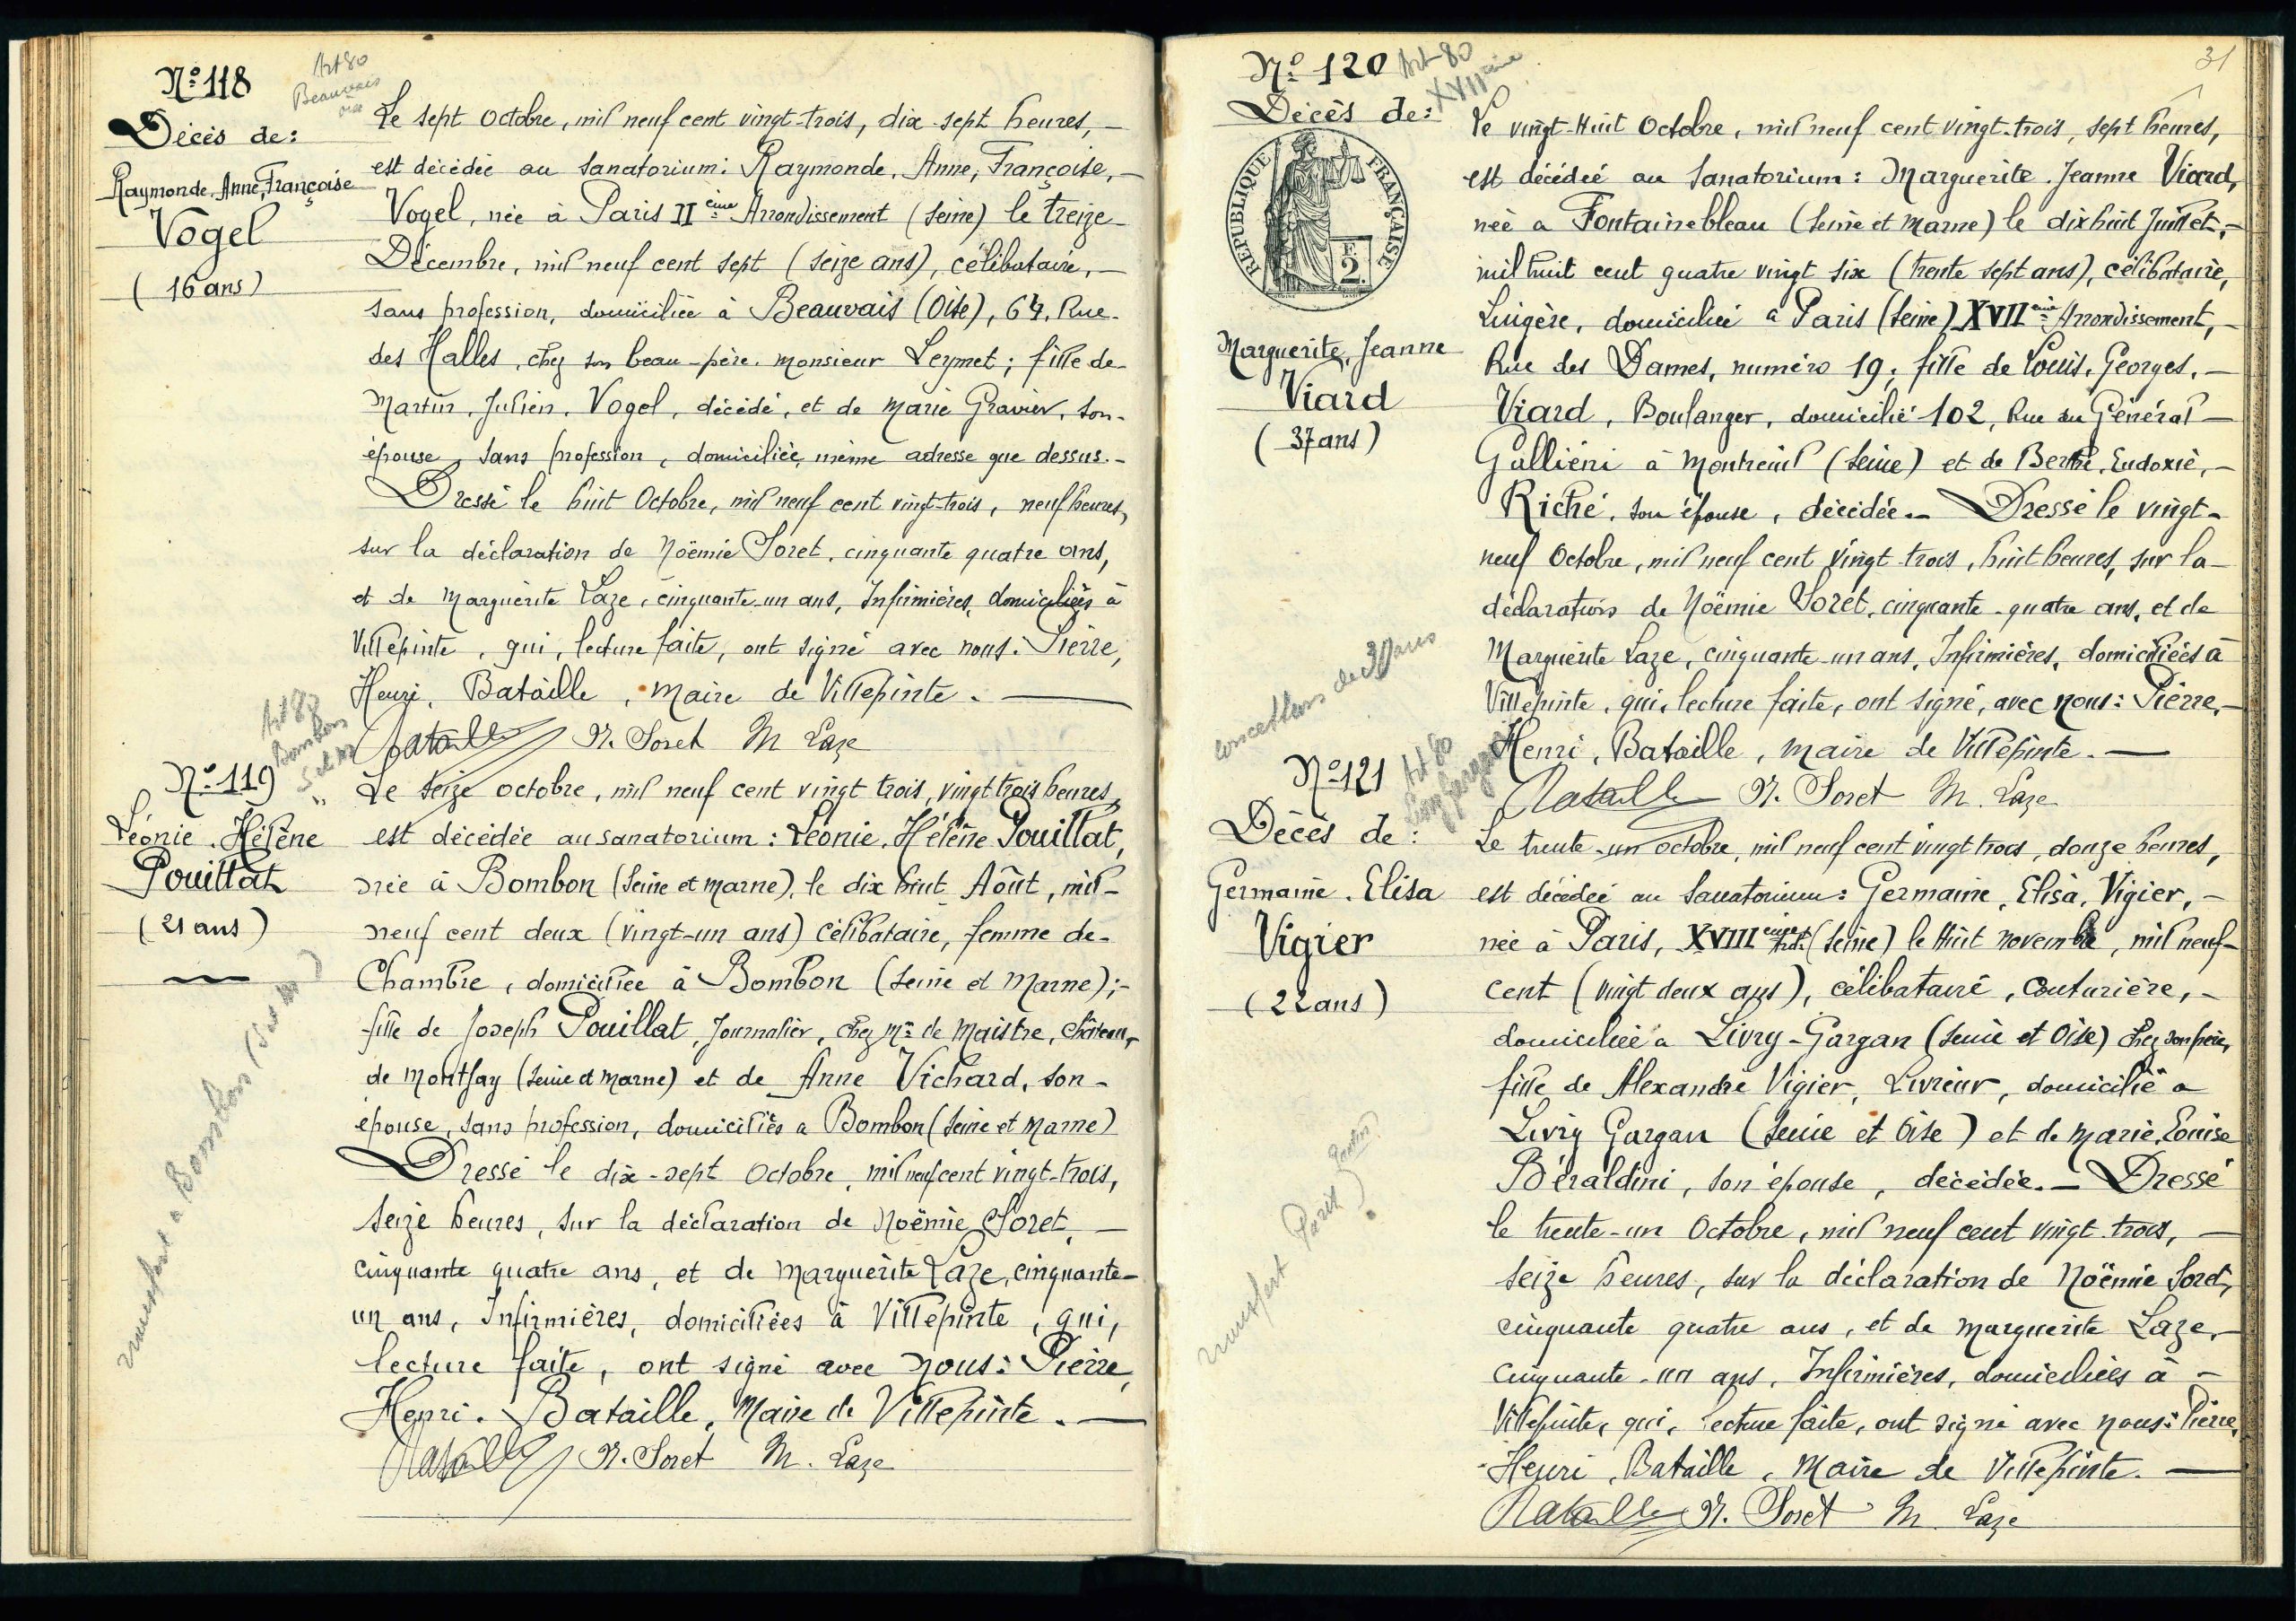 N° 118
Art 80
Beauvais
Oise
Décès de:
Raymonde, Anne, Françoise
Vogel
(16 ans)
Le sept Octobre, mil neuf cent vingt-trois, dix-sept heures, —
est décédée au Sanatorium: Raymonde, Anne, Françoise, —
Vogel, née à Paris II ème Arrondissement (Seine) le treize
Décembre, mil neuf cent sept (seize ans), célibataire, —
sans profession, domiciliée à Beauvais (Oise), 64, Rue-
des Halles, chez son beau-père, monsieur Leymet; fille de-
Martin, Julien, Vogel, décédé, et de Marie Gravier, son-
épouse, sans profession, domiciliée, même adresse que dessus.-
Dressé le huit Octobre, mil neuf cent vingt-trois, neuf heures,
sur la déclaration de Noëmie Soret, cinquante quatre ans,
et de Marguerite Laze, cinquante-un ans, Infirmières, domiciliées à
Villepinte, qui, lecture faite, ont signé avec nous: Pierre,
Henri, Bataille, Maire de Villepinte. —
Bataille N. Soret M Laze
N° 119
Art 80
Bombon
S et M
Léonie, Hélène
Pouillat
(21 ans)
transfert à Bombon (S et M)
Le seize octobre, mil neuf cent vingt trois, vingt trois heures,
est décédée au sanatorium: Léonie, Hélène Pouillat,
née à Bombon (Seine et Marne), le dix huit Août, mil-
neuf cent deux (vingt-un ans) célibataire, femme de-
Chambre, domiciliée à Bombon (Seine et Marne);-
fille de Joseph Pouillat, Journalier, chez Mr de Maistre, Château,-
de Montjay (Seine et Marne) et de Anne Vichard, son-
épouse, sans profession, domiciliés a Bombon (Seine et Marne)
Dressé le dix-sept Octobre, mil neuf cent vingt-trois,
seize heures, sur la déclaration de Noëmie Soret, —
cinquante quatre ans, et de Marguerite Laze, cinquante-
un ans, Infirmières, domiciliées à Villepinte, qui,
lecture faite, ont signé avec nous: Pierre,
Henri. Bataille, Maire de Villepinte. —
Bataille N. Soret M. Laze
31
N° 120
Art 80
XVII ème
Décès de:
REPUBLIQUE FRANÇAISE
2
Marguerite, Jeanne
Viard
(37 ans)
concession de 30 ans
Le vingt-Huit Octobre, mil neuf cent vingt-trois, sept heures,
est décédée au Sanatorium: Marguerite. Jeanne Viard,
née a Fontainebleau (Seine et Marne) le dix huit Juillet,-
mil huit cent quatre vingt six (trente sept ans), célibataire,
Lingère, domiciliée à Paris (Seine) XVII ème Arrondissement, —
Rue des Dames, numéro 19; fille de Louis, Georges, —
Viard, Boulanger, domicilié 102, Rue du Général —
Galliéni à Montreuil (Seine) et de Berthe, Eudoxie, —
Riché, son épouse, décédée.— Dressé le vingt-
neuf Octobre, mil neuf cent vingt trois, huit heures, sur la-
déclaration de Noëmie Soret, cinquante-quatre ans, et de
Marguerite Laze, cinquante-un ans, Infirmières, domiciliées à
Villepinte, qui, lecture faite, ont signé, avec nous: Pierre,—
Henri, Bataille, Maire de Villepinte. —
Bataille N. Soret M. Laze
N° 121
Art 80
Livry Gargan
Décès de:
Germaine. Elisa
Vigier
(22 ans)
transfert Paris Pantin
Le trente-un octobre, mil neuf cent vingt trois, douze heures,
est décédée au Sanatorium: Germaine, Elisa, Vigier, —
née à Paris, XVIII ème Art. (Seine) le Huit novembre, mil neuf-
cent (vingt deux ans), célibataire, Couturière, —
domiciliée a Livry-Gargan (Seine et Oise) chez son père,
fille de Alexandre Vigier, Livreur, domicilié a
Livry Gargan (Seine et Oise) et de Marie, Louise
Béraldini, son épouse, décédée.— Dressé
le trente-un Octobre, mil neuf cent vingt-trois, —
seize heures, sur la déclaration de Noëmie Soret,
cinquante quatre ans, et de Marguerite Laze,—
cinquante-un ans, Infirmières, domiciliées à —
Villepinte, qui, lecture faite, ont signé avec nous: Pierre,
Henri, Bataille, Maire de Villepinte. —
Bataille N. Soret M. Laze